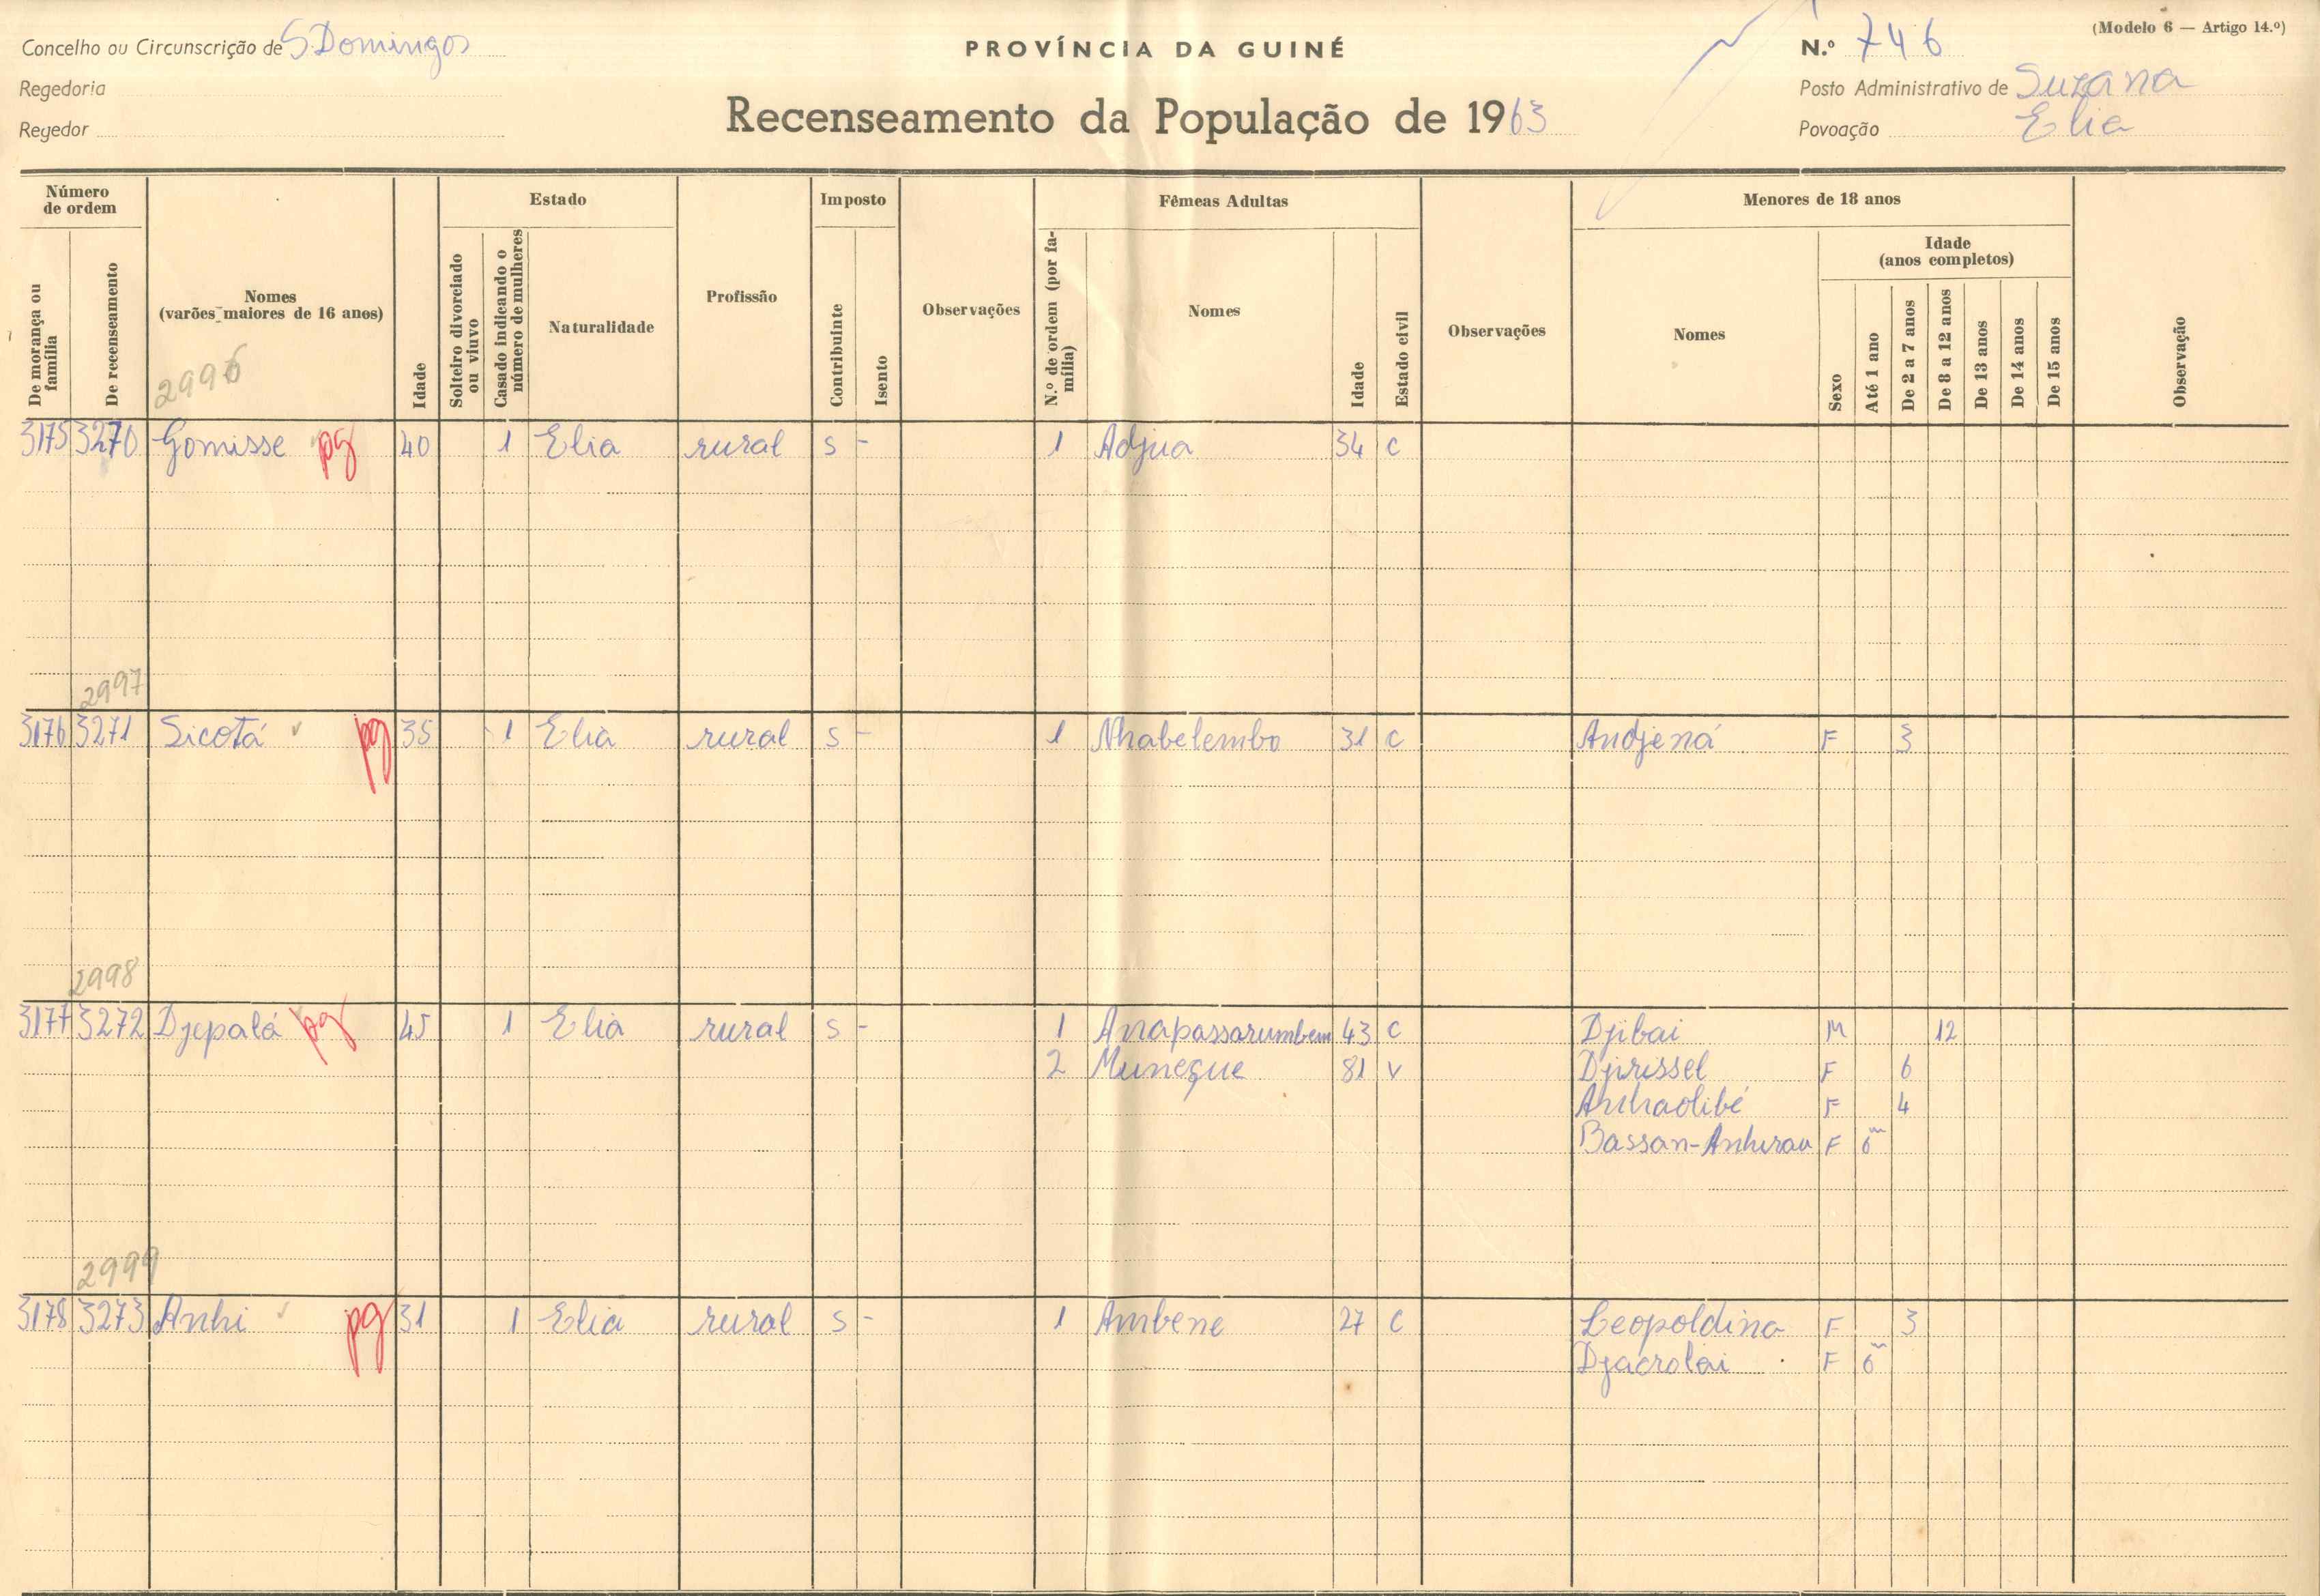 Concelho ou Circunscrição de S. Domingos
PROVÍNCIA DA GUINÉ
N.º 746
(Modelo 6 — Artigo 14.º)
Regedoria
Posto Administrativo de Suzana
Regedor
Recenseamento da População de 1963
Povoação Elia
Número de ordem
De morança ou família
De recenseamento
Nomes
(varões maiores de 16 anos)
2996
Idade
Estado
Solteiro divorciado ou viuvo
Casado indicando o número de mulheres
Naturalidade
Profissão
Imposto
Contribuinte
Isento
Observações
Fêmeas Adultas
N.º de ordem (por família)
Nomes
Idade
Estado civil
Observações
Menores de 18 anos
Nomes
Sexo
Idade
(anos completos)
Até 1 ano
De 2 a 7 anos
De 8 a 12 anos
De 13 anos
De 14 anos
De 15 anos
Observação
3175 3270 Gomisse pg 40 1 Elia rural s - 1 Adjua 34 c
2997
3176 3271 Sicotá pg 35 1 Elia rural s - 1 Nhabelembo 31 c Andjená F 3
2998
3177 3272 Djepalá pg 45 1 Elia rural s - 1 Anapassarumbem 43 c Djibai M 12
2 Muneque 81 v Djirissel F 6
Anhaolibé F 4
Bassan-Anhirau F 6m
2999
3178 3273 Anhi pg 31 1 Elia rural s - 1 Ambene 27 c Leopoldina F 3
Djacrolai F 6m